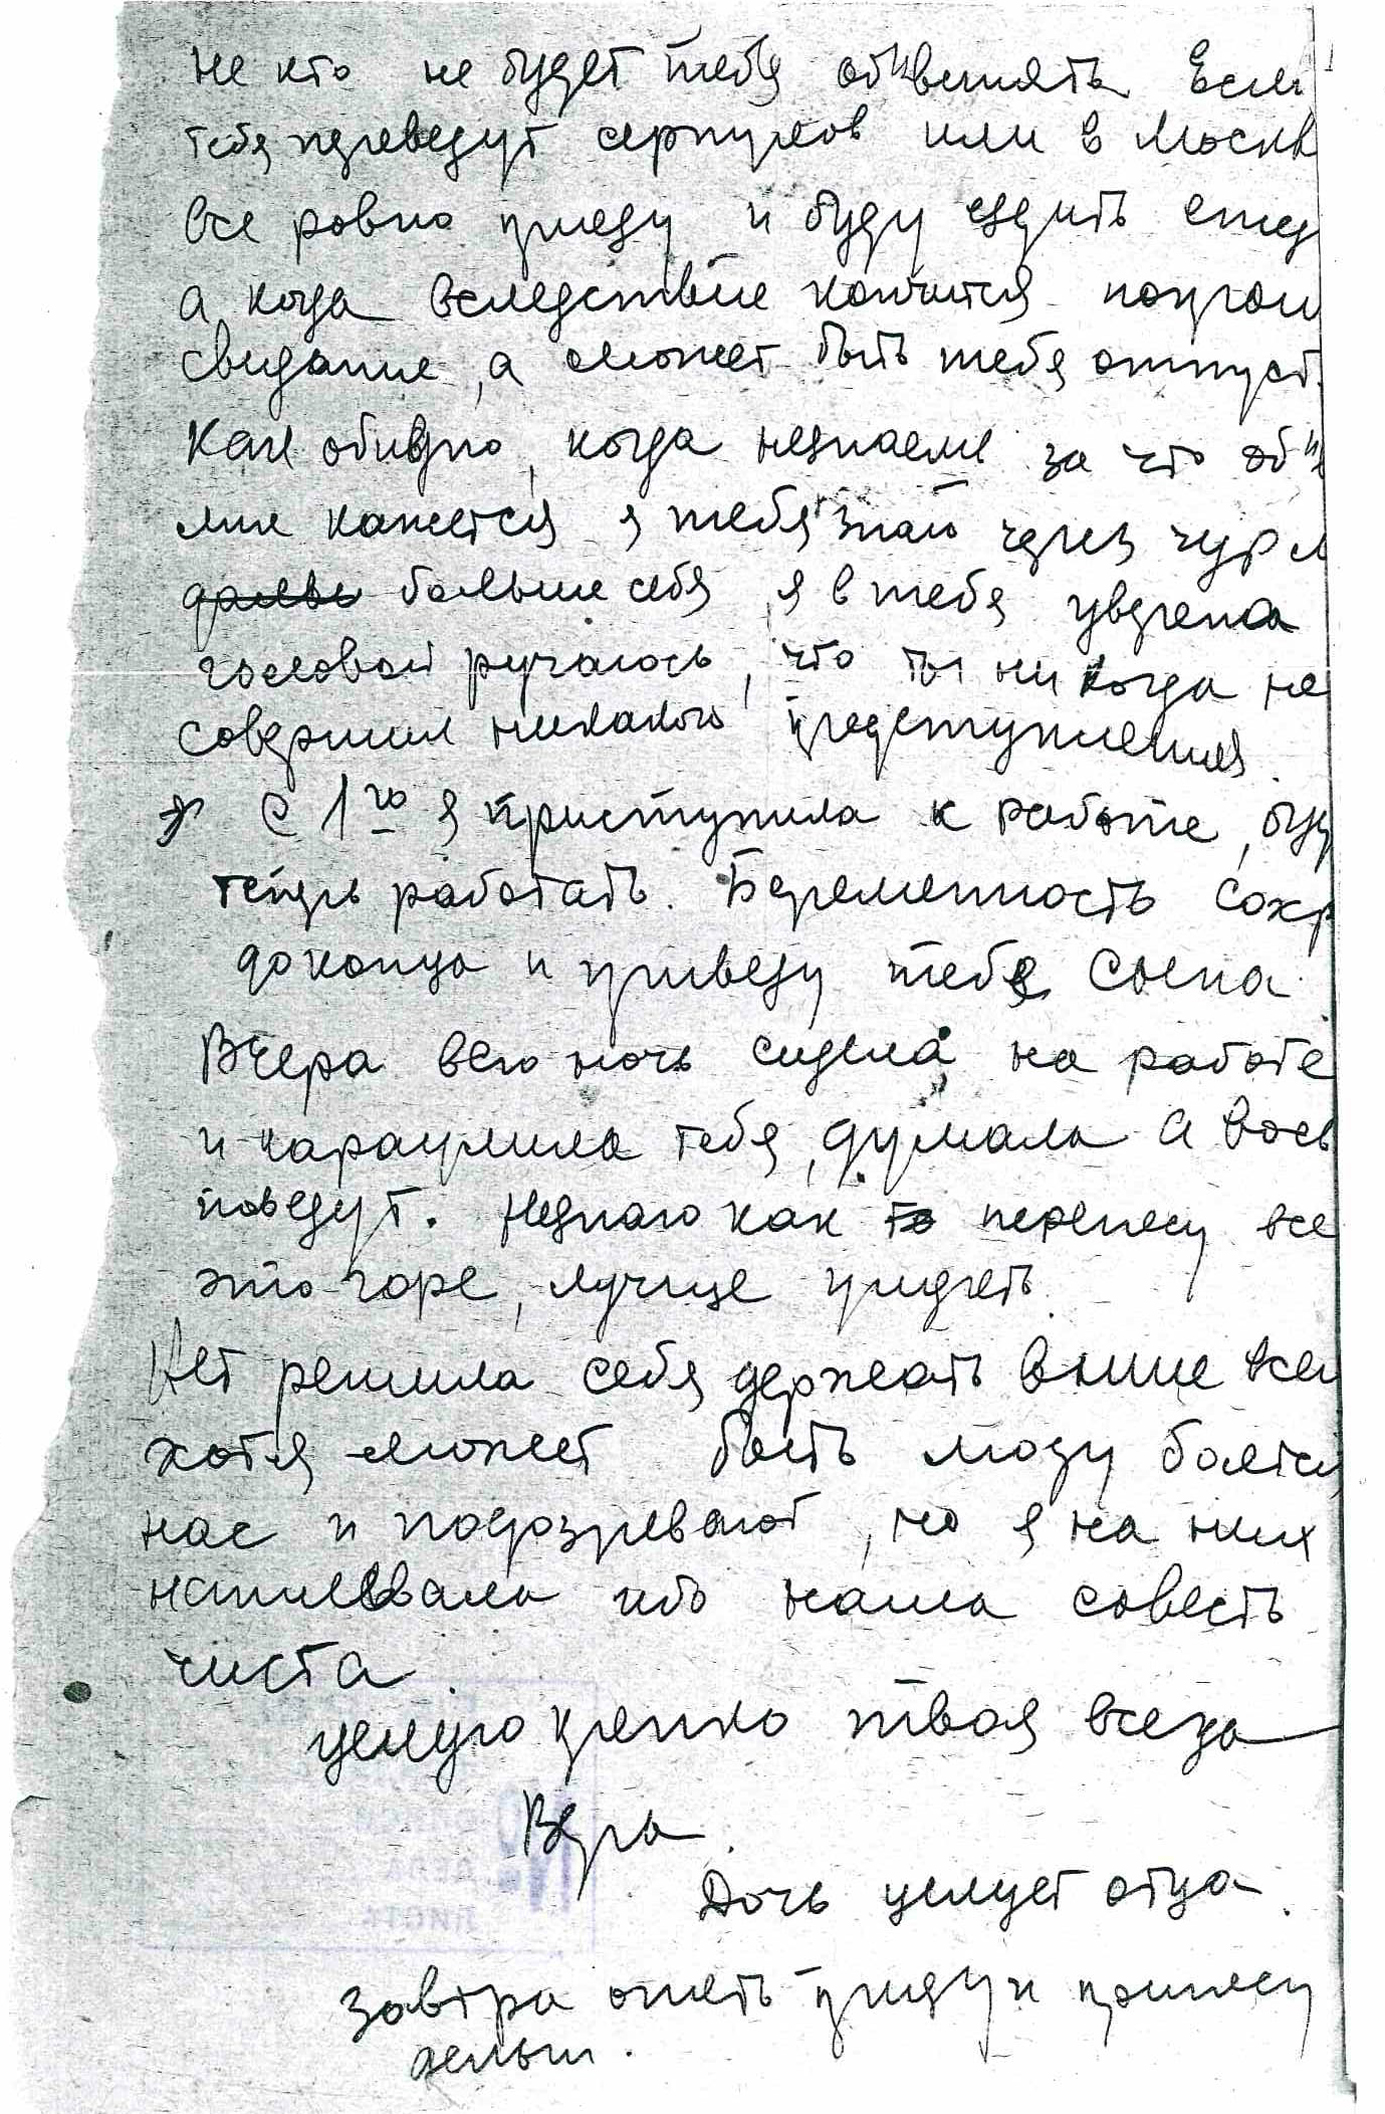 не кто не будет тебя обвинять Если
тебя переведут серпухов или в Москв
все ровно приеду и буду ездить ежед
а когда вследствие кончится попрош
свидание, а может быть тебя отпуст.
Как обидно, когда незнаеш за что об
мне кажется я тебя знаю через чур
больше себя, я в тебя уверена
головой ручаюсь, что ты ни когда не
совершил никакого предступления.
С 1го я приступила к работе, буд
теперь работать. Беременность сохр
доконца и приведу тебе сына
Вчера всю ночь сидела на работе
и караулила тебя, думала а вось
поведут. Незнаю как перенесу все
это горе, лучше умереть.
Нет решила себя держать выше всех
хотя может быть люди боятся
нас и подозревают, но я на них
наплевала ибо наша совесть
чиста.
целую крепко твоя всегда
Вера.
Дочь целует отца.
завтра опять приду и принесу
деньги.